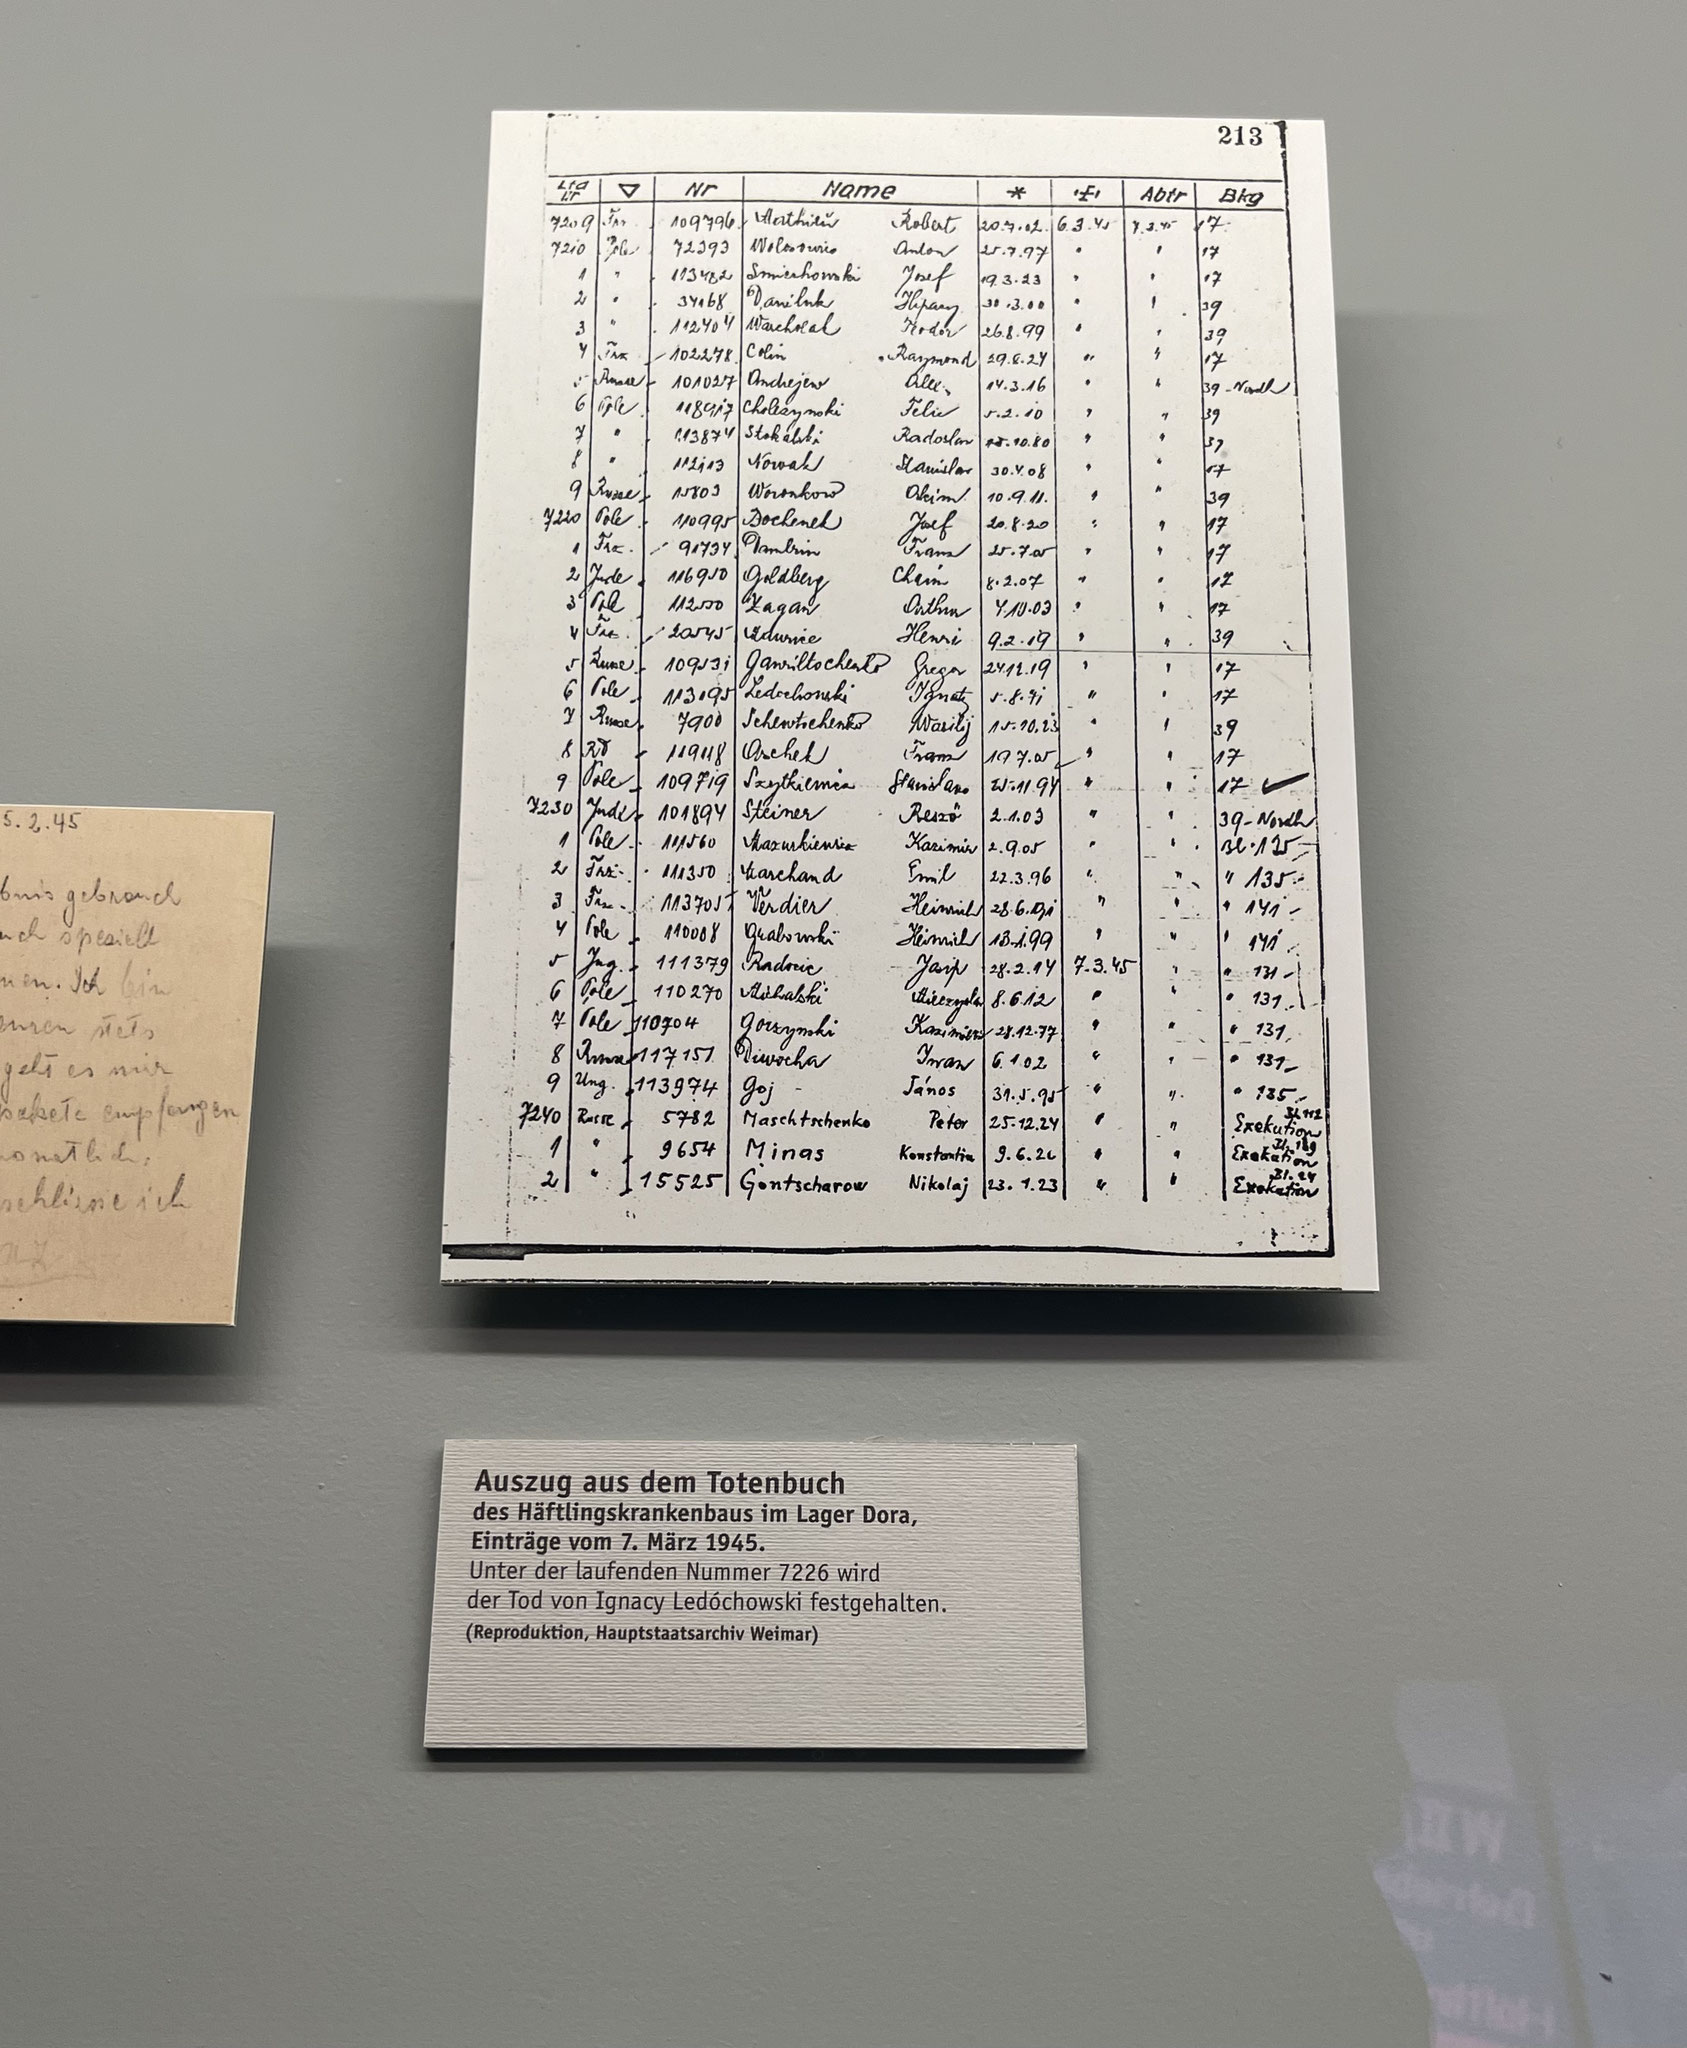 213
Lfd Nr ▽ Nr Name * Abtr Bkg
7209 Frz. 109796 Robert 20.7.02. 6.3.45 7.3.45 17
7210 Pole 72393 Anton 25.7.97 " " 17
1 " 113482 Smiechowski Josef 19.3.23 " " 17
2 " 34168 Daniluk 30.3.00 " " 39
3 " 112404 Warcholak Teodor 26.8.99 " " 39
4 Frz 102278 Colin Raymond 29.8.24 " " 17
5 Russe 101027 Andrejew Alex. 14.3.16 " " 39-Nordh
6 Pole 118917 Choleszynski Felix 5.2.10 " " 39
7 " 113874 Stokalski Radoslav 10.80 " "
8 " Nowak Stanislav 30.4.08 " " 17
9 Russe 15803 Woronkow Akim 10.9.11. " " 39
7220 Pole 110995 Bochenek Josef 20.8.20 " " 17
1 Frz. 91734 Dambrin Franz 25.7.05 " " 17
2 Jude 116950 Goldberg Chaim 8.2.07 " " 17
3 Pole 112500 Zagan Arthur " " 17
4 Frz. 20545 Maurice Henri 9.2.19 " " 39
5 Russe 109531 Gawriltschenko Gregor 24.12.19 " " 17
6 Pole 113195 Ledochowski Ignatz 5.8.71 " " 17
7 Russe 7900 Schewtschenko Wasilij 15.10.23 " " 39
8 RD 119118 Franz 19.7.05 " " 17
9 Pole 109719 Szytkiewicz Stanislaus 25.11.94 " " 17 ✓
7230 Jude 101894 Steiner Reszö 2.1.03 " " 39-Nordh
1 Pole 111560 Mazurkiewicz Kazimir 2.9.05 " " Bl. 135
2 Frz. 111350 Marchand Emil 22.3.96 " " " 135
3 Frz. 113705 Verdier Heinrich 28.6. " " " 141
4 Pole 110008 Grabowski Heinrich 13.1.99 " " " 141
5 Jug. 111379 Radocic Josip 28.2.14 7.3.45 " " 131
6 Pole 110270 Michalski Mieczyslav 8.6.12 " " " 131
7 Pole 110704 Gorzynski Kazimierz 28.12.77 " " " 131
8 Russe 117151 Diwocha Iwan 6.1.02 " " " 131
9 Ung. 113974 Goj - János 31.5.95 " " " 135
7240 Russe 5782 Maschtschenko Peter 25.12.24 " " Bl. 112 Exekution
1 " 9654 Minas Konstantin 9.6.26 " " Exekution
2 " 15525 Gontscharow Nikolaj 23.1.23 " " Bl. 24 Exekution
5.2.45
gebrauch
speziell
Ich bin
stets
geht es mir
empfangen
monatlich.
schliesse ich
Auszug aus dem Totenbuch
des Häftlingskrankenbaus im Lager Dora,
Einträge vom 7. März 1945.
Unter der laufenden Nummer 7226 wird
der Tod von Ignacy Ledóchowski festgehalten.
(Reproduktion, Hauptstaatsarchiv Weimar)